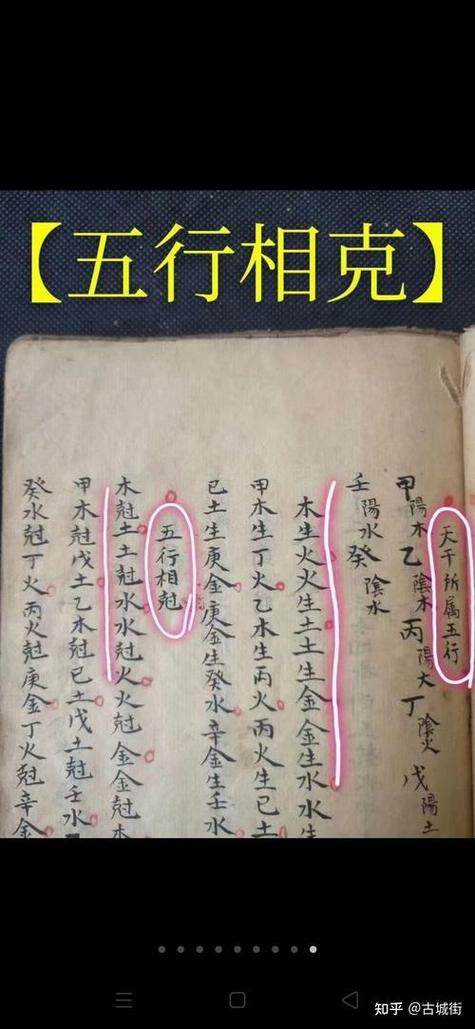 【五行相克】
天干所属五行
甲陽木乙陰木丙陽火丁陰火戊陽土
壬陽水癸陰水
木生火火生土土生金金生水水生
甲木生丁火乙木生丙火丙火生已土
已土生庚金庚金生癸水辛金生壬水
五行相尅
木尅土土尅水水尅火火尅金金尅木
甲木尅戊土乙木尅已土戊土尅壬水
癸水尅丁火丙火尅庚金丁火尅辛金
知乎 @古城街